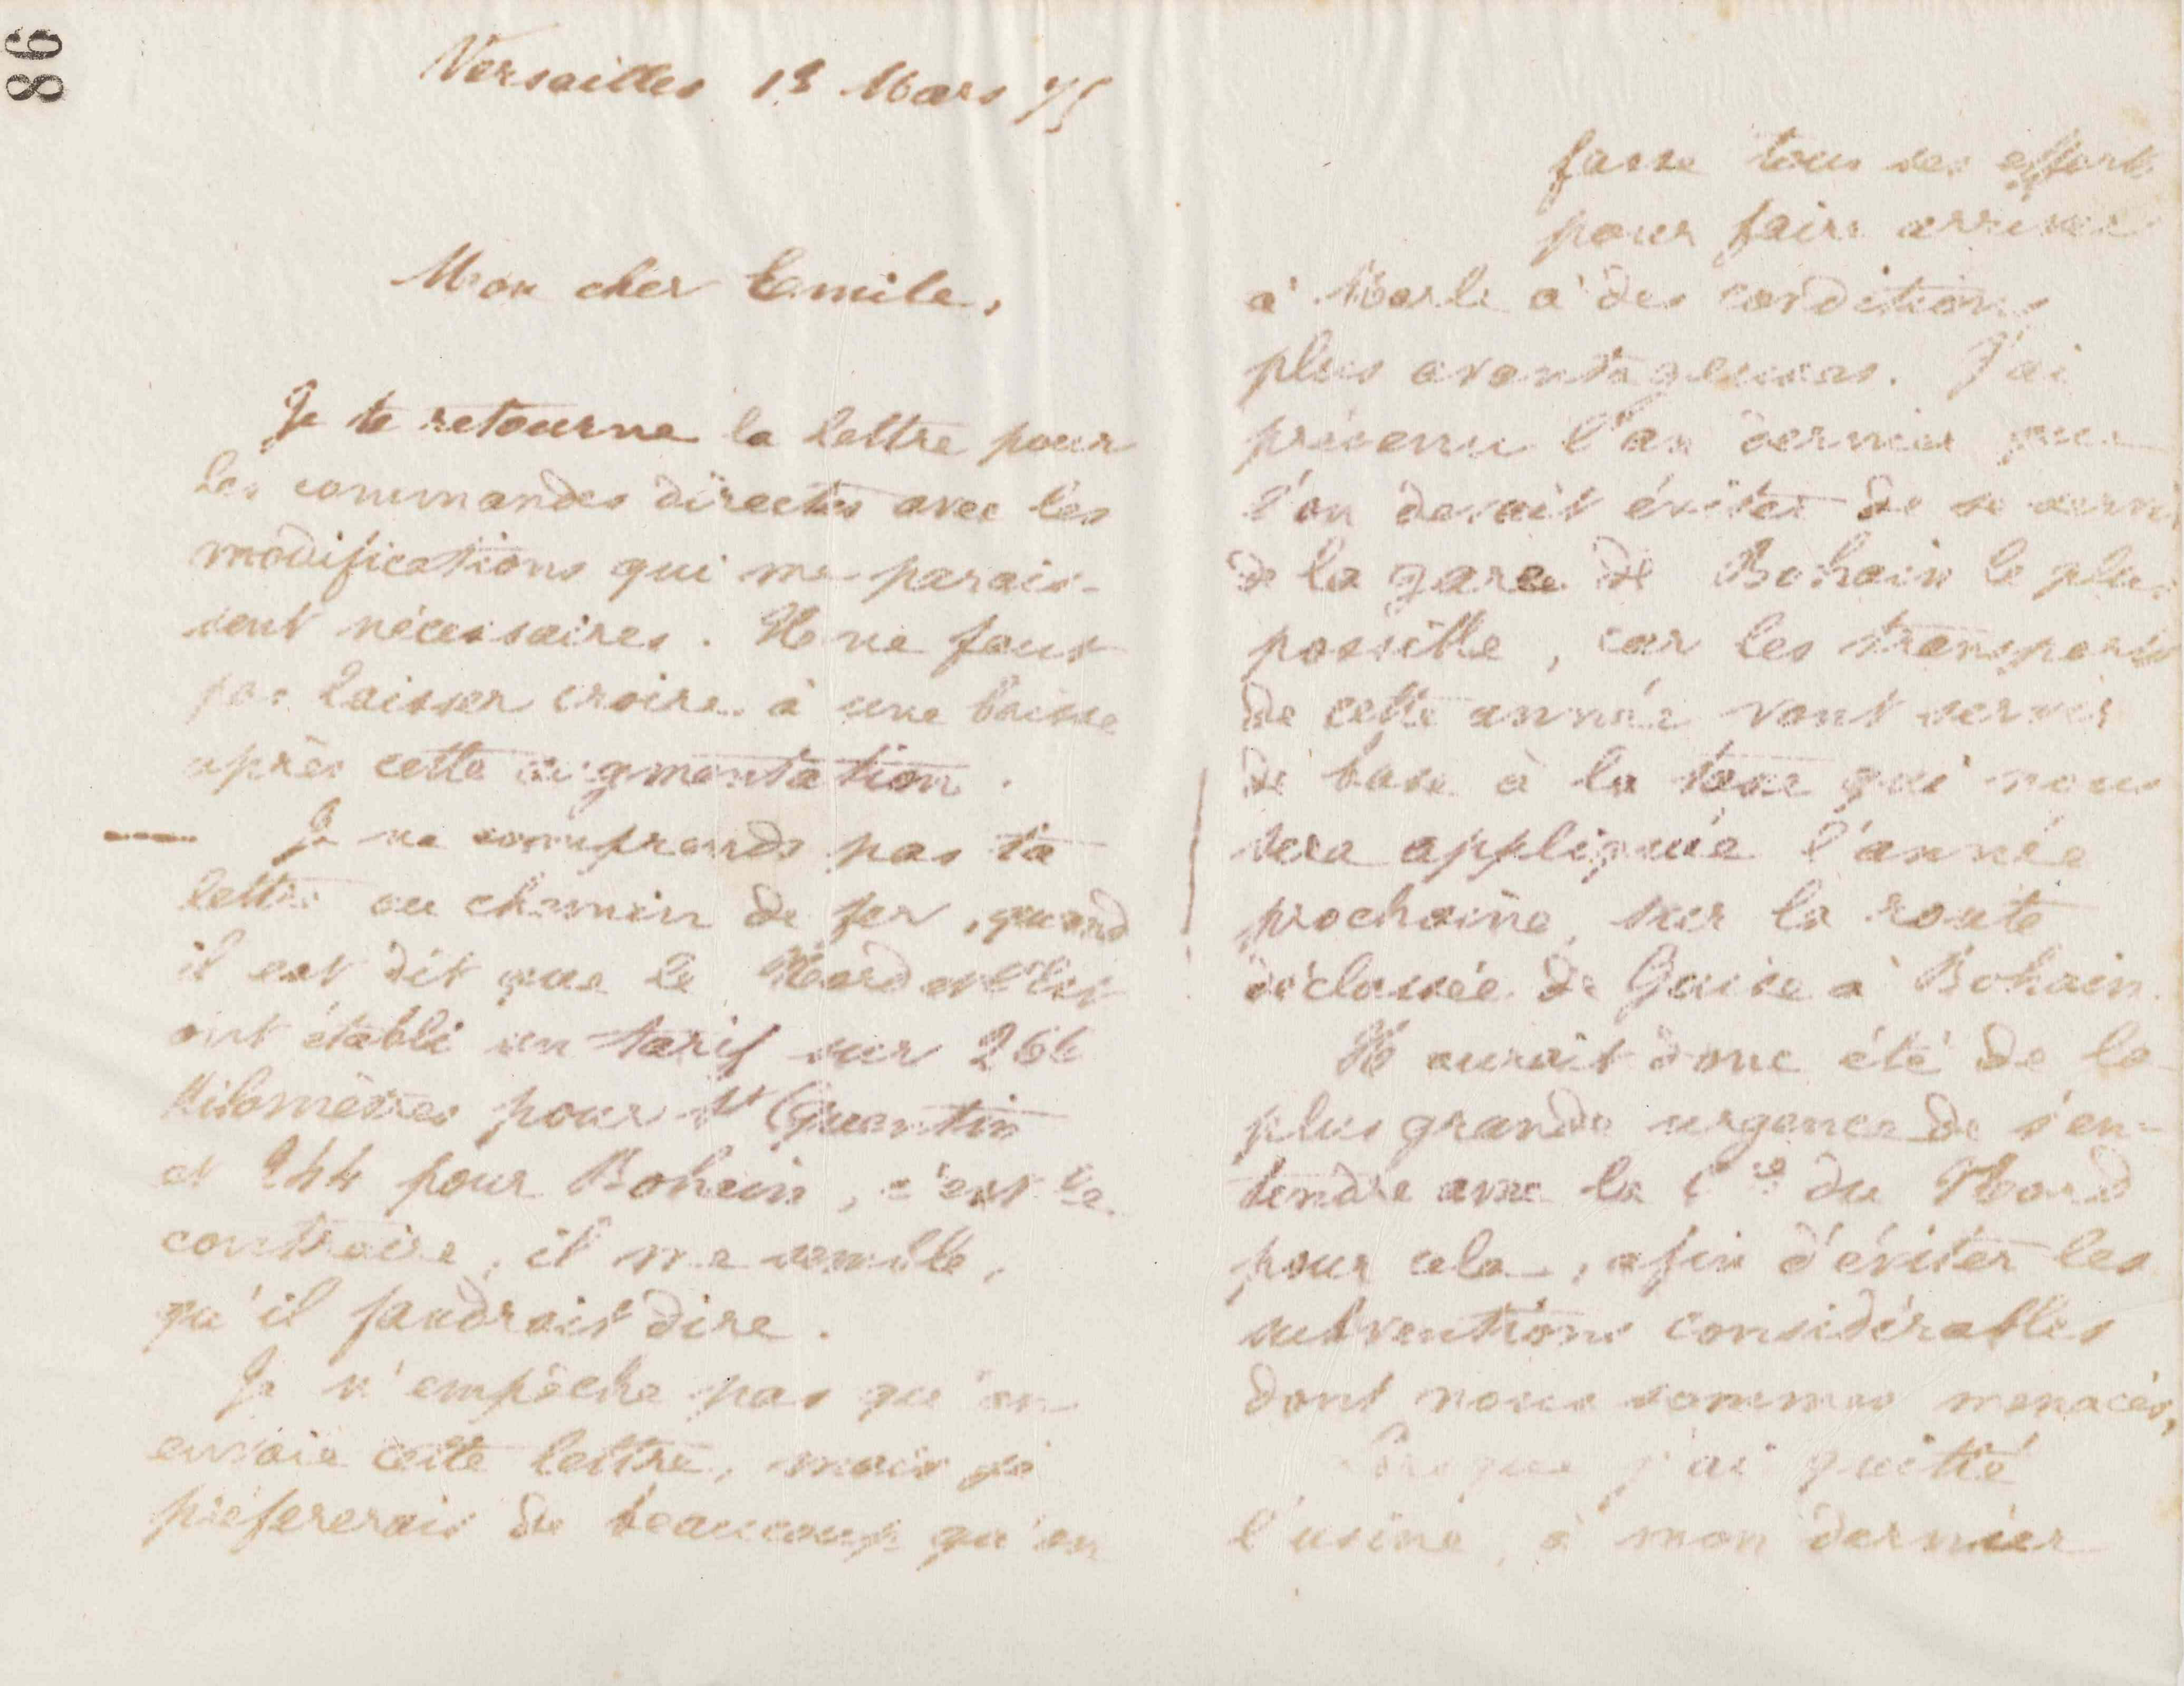 86
Versailles 13 Mars 75
Mon cher Emile,
Je te retourne la lettre pour
les commandes directes avec les
modifications qui me parais-
sent nécessaires. Il ne faut
pas laisser croire à une baisse
après cette augmentation.
Je ne comprends pas ta
lettre au chemin de fer, quand
il est dit que le Nord et l'Est
ont établi un tarif sur 266
Kilomètres pour St Quentin
et 244 pour Bohain, c'est le
contraire, il me semble,
qu'il faudrait dire.
Je n'empêche pas qu'on
envoie cette lettre, mais je
préfererais de beaucoup qu'on
fasse tous ses efforts
pour faire arriver
à Marle à des conditions
plus avantageuses. J'ai
prévenu l'an dernier que
l'on devait éviter de se servir
de la gare de Bohain le plus
possible, car les transports
de cette année vont servir
de base à la taxe qui nous
sera appliquée l'année
prochaine, sur la route
déclassée de Guise à Bohain.
Il aurait donc été de la
plus grande urgence de s'en-
tendre avec la Cie du Nord
pour cela, afin d'éviter les
subventions considérables
dont nous sommes menacés,
Lorsque j'ai quitté
l'usine, à mon dernier